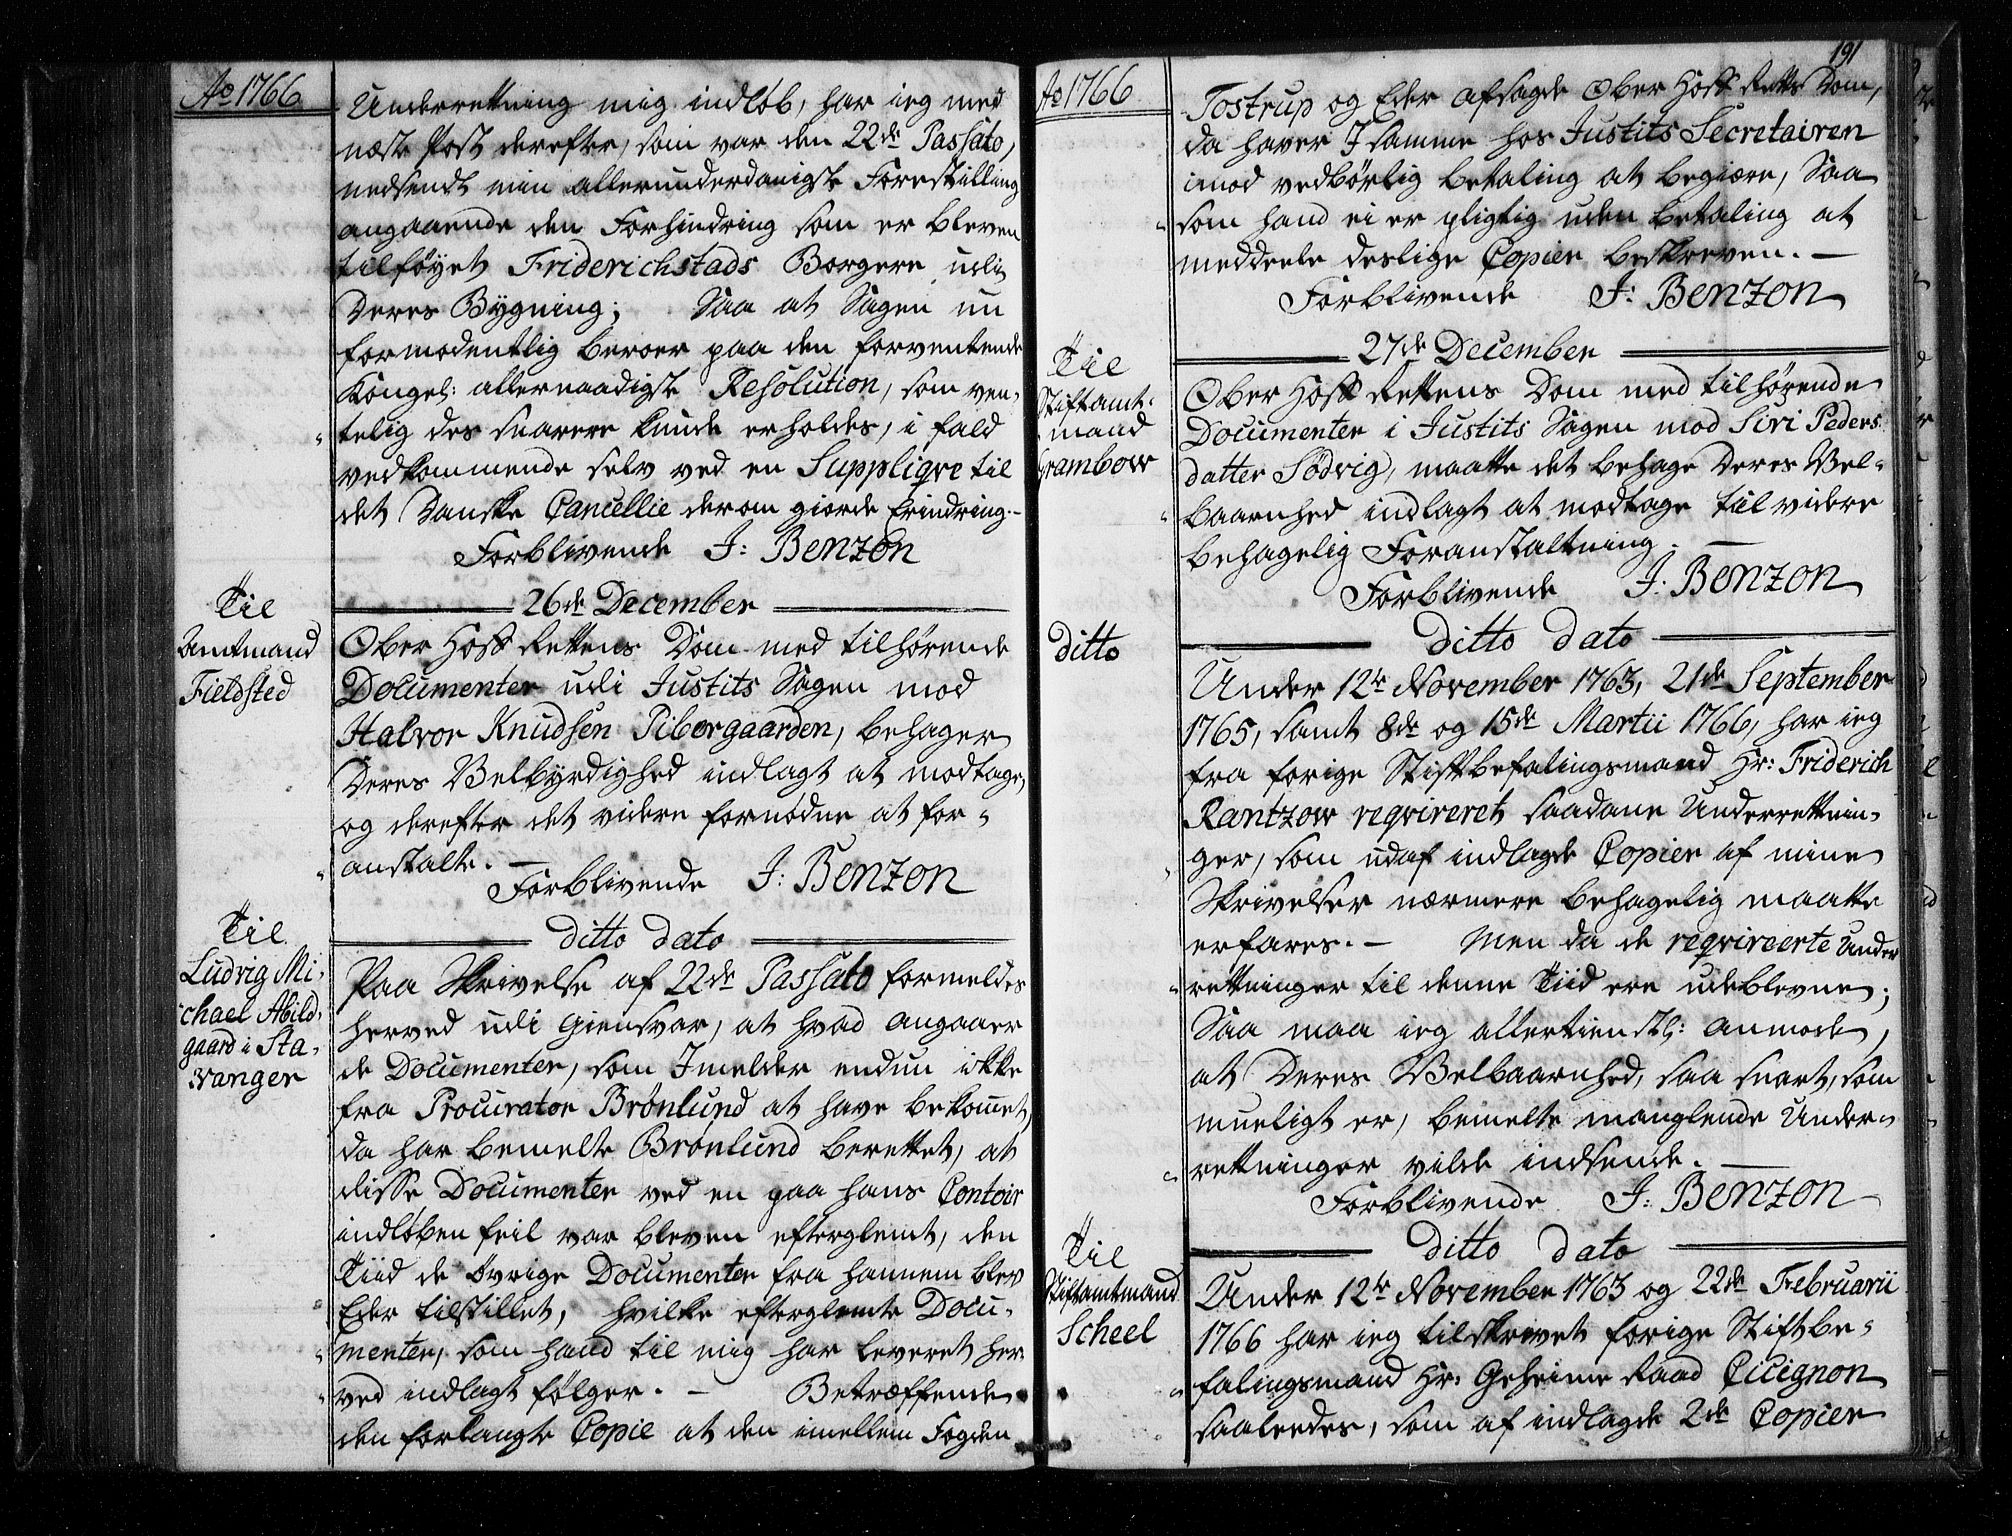 Ao 1766
Underretning mig indløb, har ieg med
næste Post derefter, som var den 22de Passato,
nedsendt min allerunderdanigste Forestilling
angaaende den Forhindring som er bleven
tilføyet Friderichstads Borgere udi
Deres Bygning; Saa at Sagen nu
formodentlig beroer paa den forventende
Kongel: allernaadigste Resolution, som ven-
telig des snarere kunde erholdes, i fald
vedkommende selv ved en Suppliqve til
det Danske Cancellie derom giorde Erindring.-
Forblivende J: Benzon
Til
Amtmand
Fieldsted
26de December
Ober Hoff Rettens Dom med tilhørende
Documenter udi Justits Sagen mod
Halvor Knudsen Piborgaarden, behager
Deres Velbyrdighed indlagt at modtage,
og derefter det videre fornødne at for-
anstalte. -
Forblivende J: Benzon
Til
Ludvig Mi-
chael Abild-
gaard i Sta-
vanger
ditto dato
Paa Skrivelse af 22de Passato formeldes
herved udi Giensvar, at hvad angaaer
de Documenter, som I melder endnu ikke
fra Procurator Brønlund at have bekomet,
da har bemelte Brønlund berettet, at
disse Documenter ved en paa hans Contoir
indløben feil var bleven efterglemt, den
Tiid de øvrige Documenter fra hannem blev
Eder tilstillet, hvilke efterglemte Docu-
menter, som hand til mig har leveret her-
ved indlagt følger. - Betræffende
den forlangte Copie at den imellem Fogden
191
Ao 1766
Tostrup og Eder afsagde Ober Hoff Retts Dom,
da haver I samme hos Justits Secretairen
imod vedbørlig betaling at begiære, Saa
som hand ei er pligtig uden betaling at
meddeele deslige Copier beskreven. -
Forblivende J: Benzon
Til
Stiftamt-
mand
Grambow
27de December
Ober Hoff Rettens Dom med tilhørende
Documenter i Justits Sagen mod Siri Peders
datter Sødvig, maatte det behage Deres Vel-
baarnhed indlagt at modtage til videre
behagelig Foranstaltning. -
Forblivende J: Benzon
ditto
ditto dato
Under 12te November 1763, 21de September
1765, samt 8de og 15de Martii 1766, har ieg
fra forige Stiftbefalingsmand Hr: Friderich
Rantzow reqvireret saadane Underretnin-
ger, som udaf indlagde Copier af mine
Skrivelser nærmere behagelig maatte
erfares. - Men da de reqvireerte Under
rettninger til denne Tiid ere udeblevne;
Saa maa ieg allertienstl: anmode,
at Deres Velbaarnhed, saa snart, som
mueligt er, bemelte manglende Under-
rettninger vilde indsende. -
Forblivende J: Benzon
Til
Stiftamtmand
Scheel
ditto dato
Under 12te November 1763 og 22de Februarii
1766 har ieg tilskrevet forige Stiftbe-
falingsmand Hr: Geheime Raad Cicignon
saaleedes, som af indlagde 2de Copier